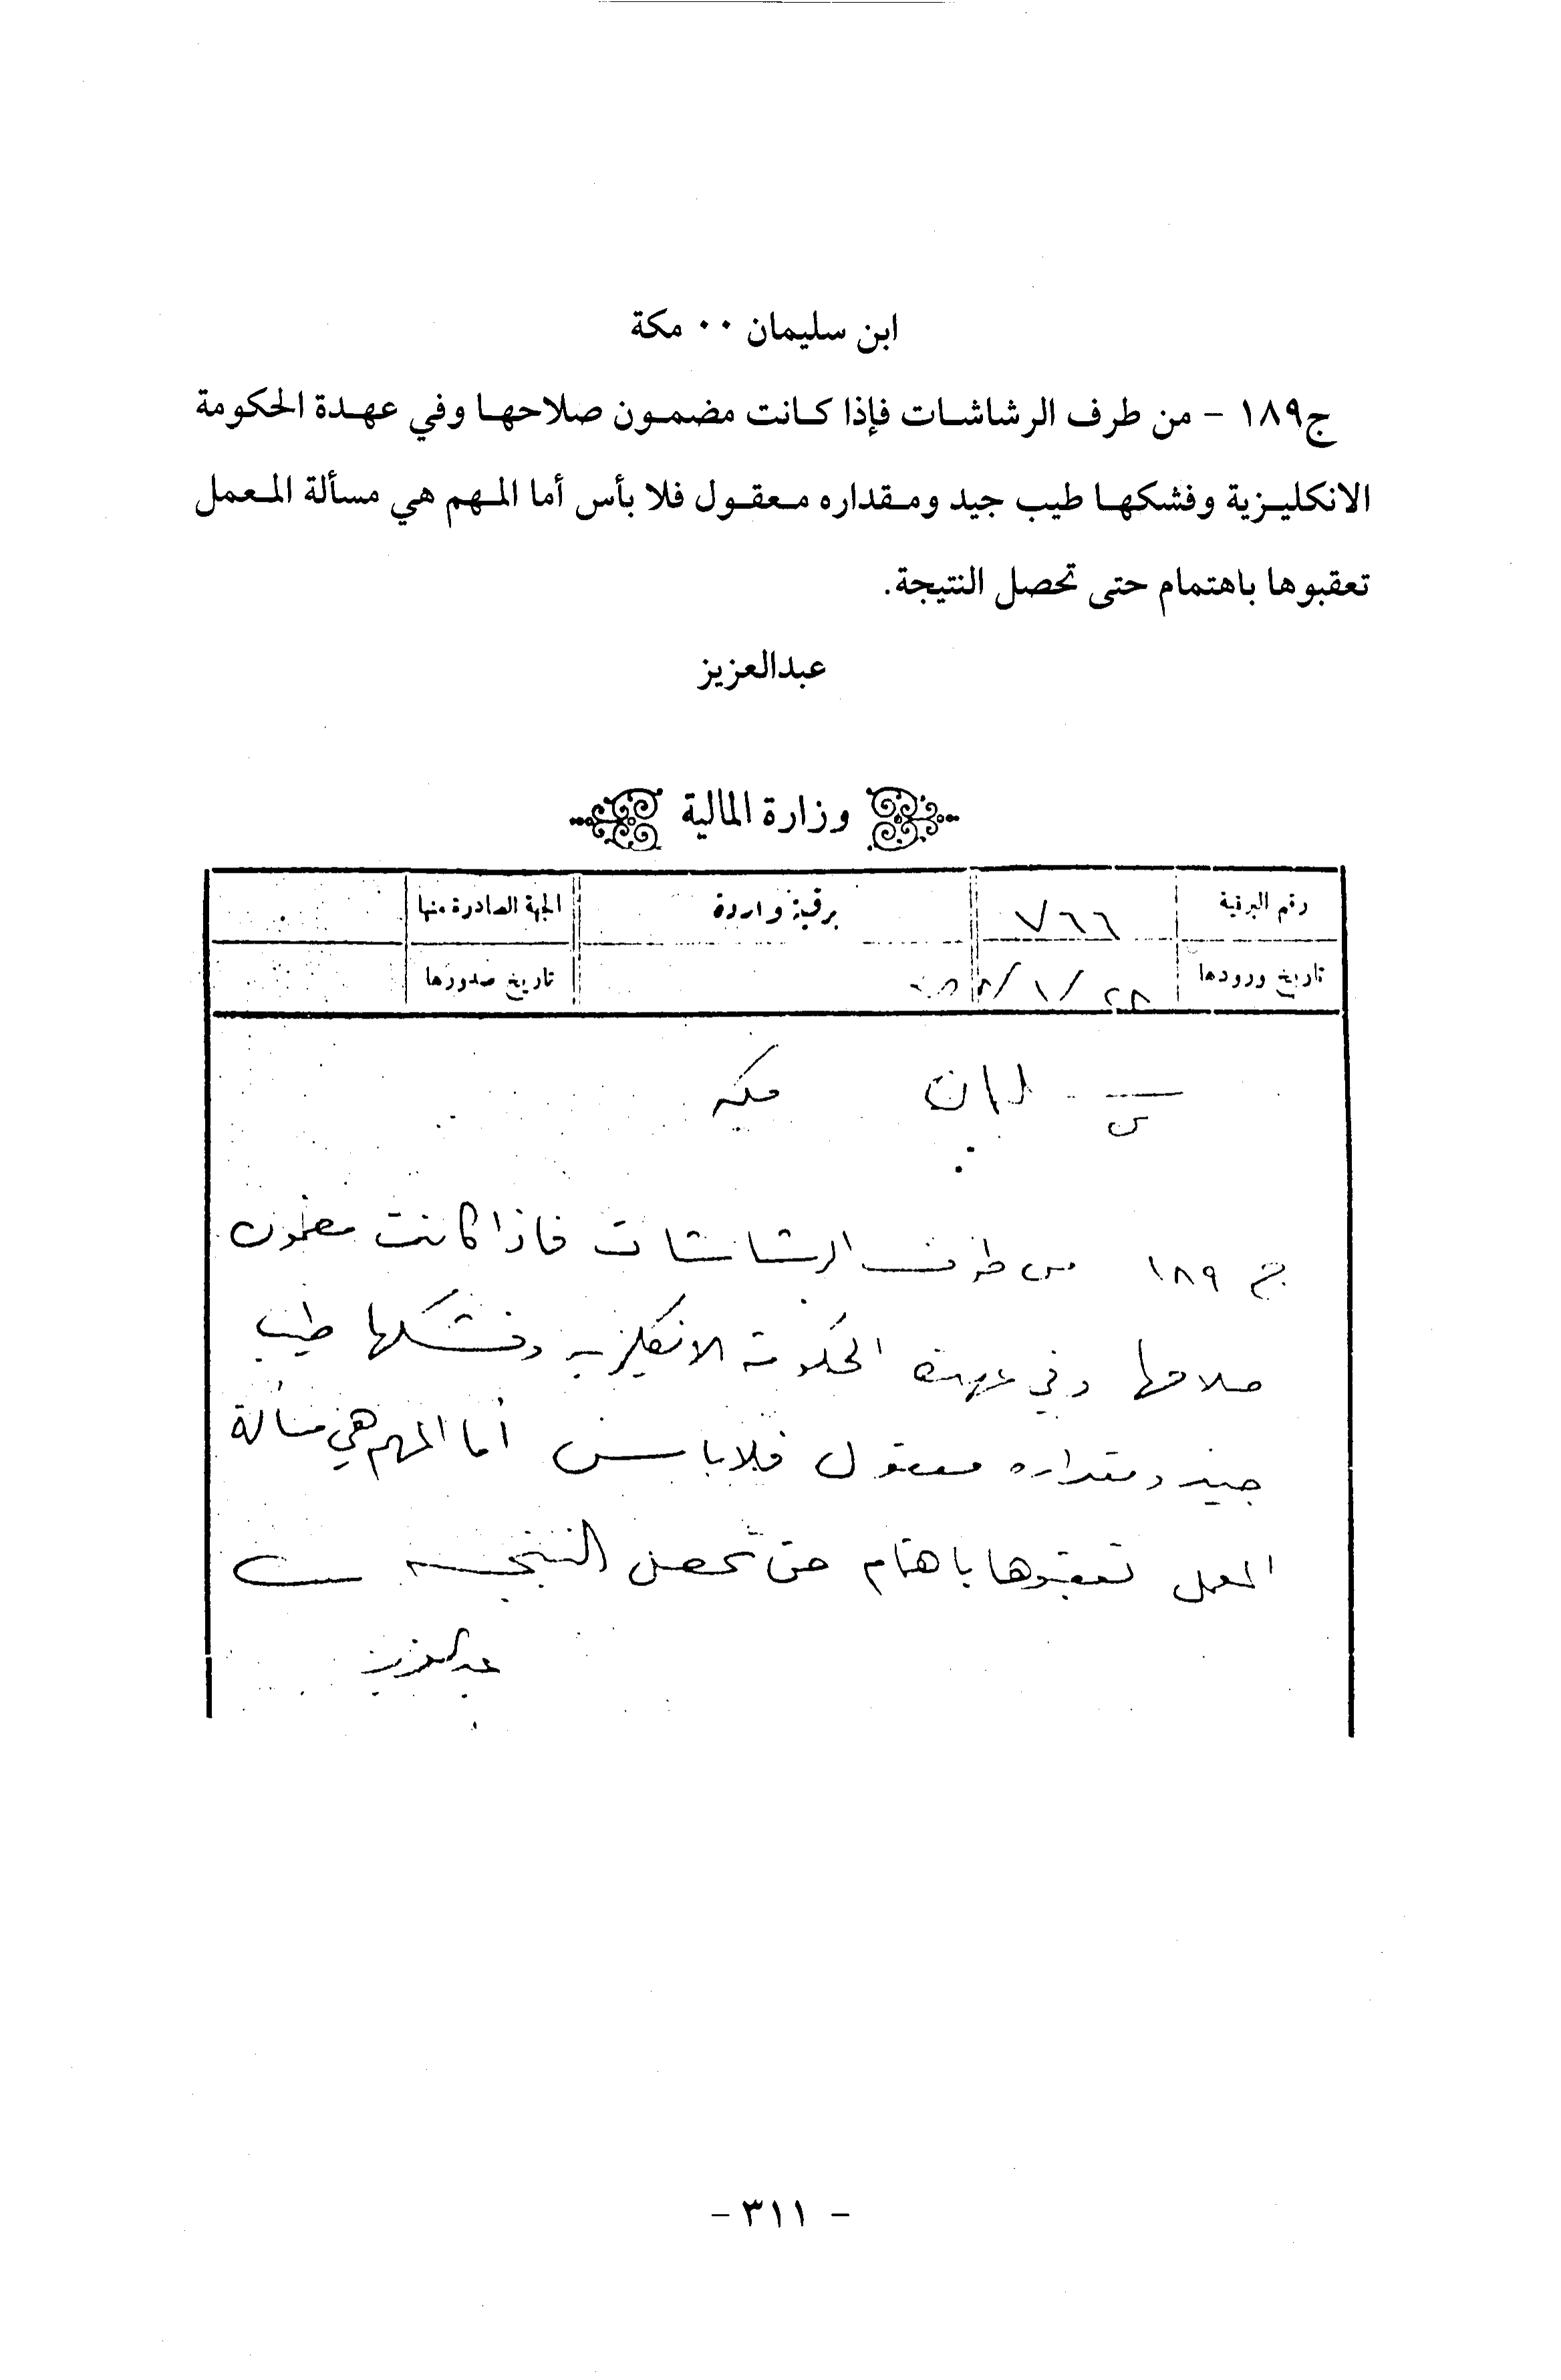 ابن سليمان ٠٠ مكة
ج١٨٩ - من طرف الرشاشات فإذا كانت مضمون صلاحها وفي عهدة الحكومة
الانكليزية وفشكها طيب جيد ومقداره معقول فلا بأس أما المهم هي مسألة المعمل
تعقبوها باهتمام حتى تحصل النتيجة.
عبدالعزيز
وزارة المالية
رقم البرقية ٧٦٦ برقية واردة الجهة الصادرة منها
تاريخ ورودها ٢٨/١/ تاريخ صدورها
مكه
ج ١٨٩ من طرف الرشاشات فاذا كانت مضمون
صلاحها وفي عهدة الحكومة الانكليزيه وفشكها طيب
جيد ومقداره معقول فلا باس أما المهم هي مسألة
المعمل تعقبوها باهتمام حتى تحصل النتيجه
عبدالعزيز
- ٣١١ -